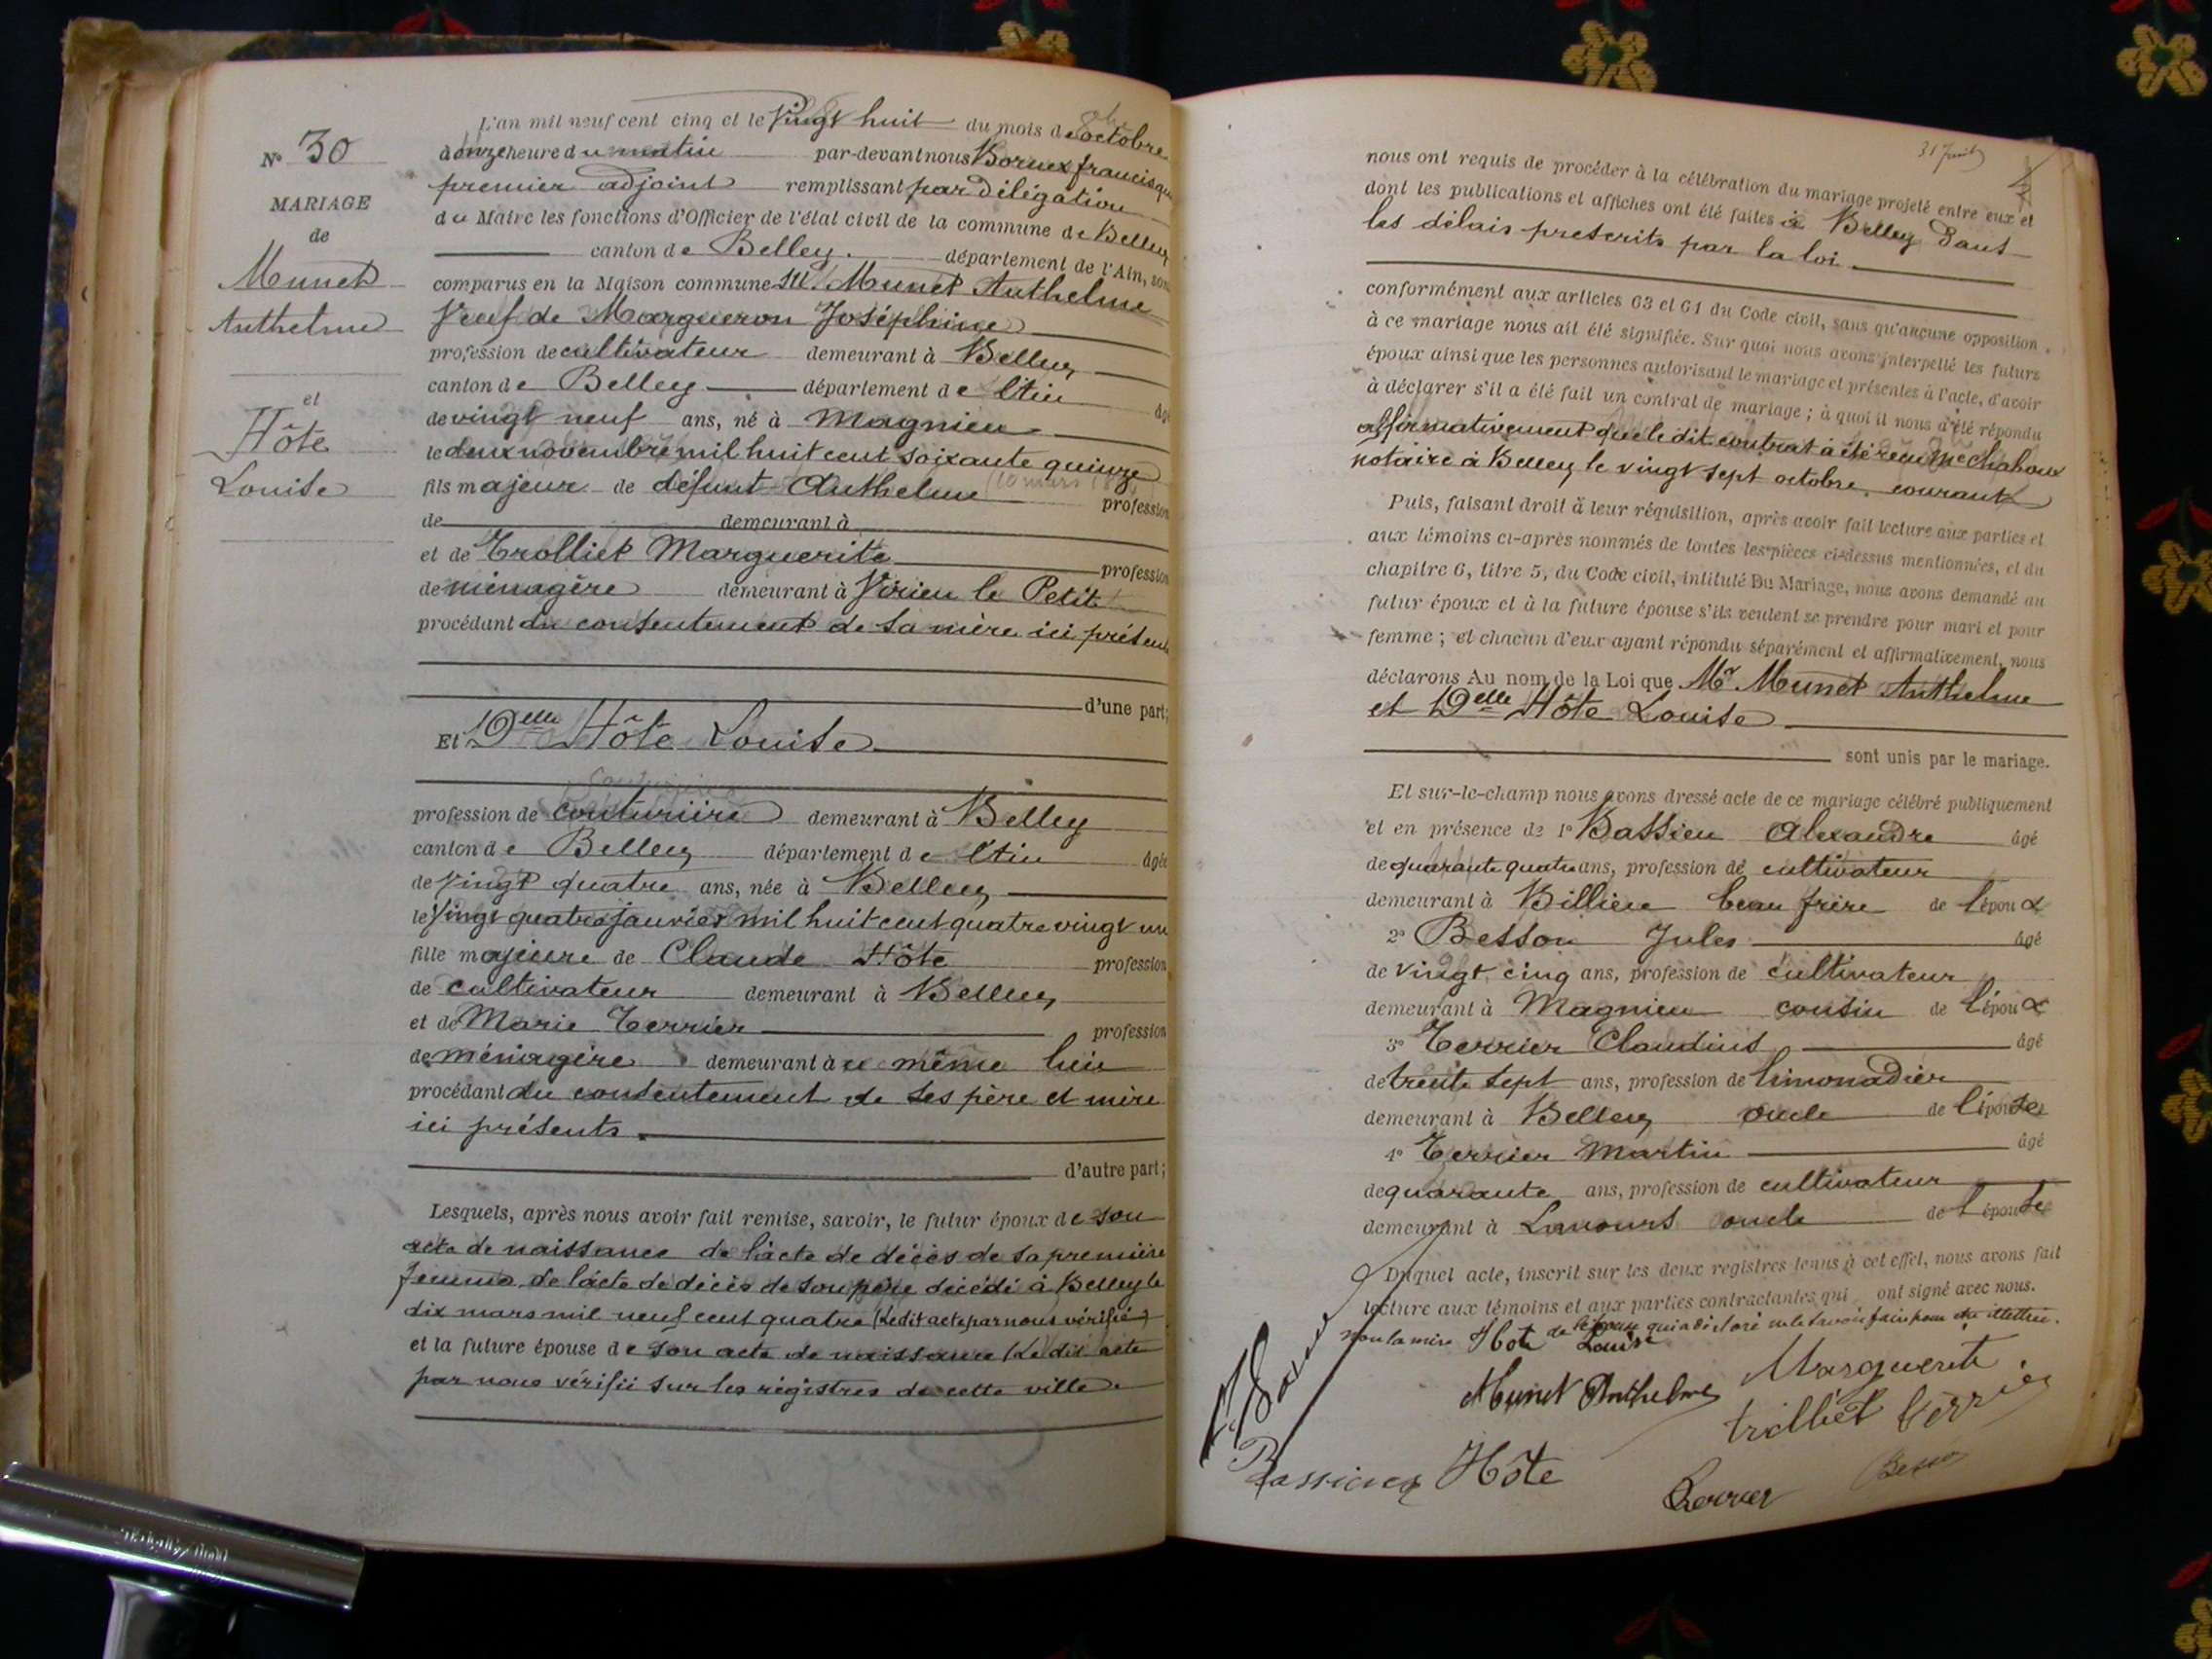 N° 30
MARIAGE
de
Munet
Anthelme
et
Hôte
Louise
L'an mil neuf cent cinq et le Vingt huit du mois de octobre
à onze heure du matin par-devant nous Bornex francisque
premier adjoint remplissant par délégation
du Maire les fonctions d'Officier de l'état civil de la commune de Belley
canton de Belley. département de l'Ain, sont
comparus en la Maison commune M. Munet Anthelme
Veuf de Margueron Joséphine
profession de cultivateur demeurant à Belley
canton de Belley département de l'Ain âgé
de vingt neuf ans, né à Magnieu
le deux novembre mil huit cent soixante quinze
fils majeur de défunt Anthelme profession
de demeurant à
et de Trolliet Marguerite profession
de ménagère demeurant à Virieu le Petit
procédant du consentement de sa mère ici présente
d'une part;
Et Delle Hôte Louise
profession de couturière demeurant à Belley
canton de Belley département de l'Ain âgée
de Vingt quatre ans, née à Belley
le Vingt quatre janvier mil huit cent quatre vingt un
fille majeure de Claude Hôte profession
de cultivateur demeurant à Belley
et de Marie Terrier profession
de ménagère demeurant à u même lieu
procédant du consentement de ses père et mère
ici présents.
d'autre part;
Lesquels, après nous avoir fait remise, savoir, le futur époux de son
acte de naissance de l'acte de décès de sa première
femme de l'acte de décès de son père décédé à Belley le
dix mars mil neuf cent quatre (Ledit acte par nous vérifié)
et la future épouse de son acte de naissance (Le dit acte
par nous vérifié sur les registres de cette ville.
nous ont requis de procéder à la célébration du mariage projeté entre eux et
dont les publications et affiches ont été faites à Belley dans
les délais prescrits par la loi.
conformément aux articles 63 et 61 du Code civil, sans qu'aucune opposition
à ce mariage nous ait été signifiée. Sur quoi nous avons interpellé les futurs
époux ainsi que les personnes autorisant le mariage et présentes à l'acte, d'avoir
à déclarer s'il a été fait un contrat de mariage ; à quoi il nous a été répondu
affirmativement que le dit contrat à été reçu Me
notaire à Belley le vingt sept octobre courant
Puis, faisant droit à leur réquisition, après avoir fait lecture aux parties et
aux témoins ci-après nommés de toutes les pièces ci-dessus mentionnées, et du
chapitre 6, titre 5, du Code civil, intitulé Du Mariage, nous avons demandé au
futur époux et à la future épouse s'ils veulent se prendre pour mari et pour
femme ; et chacun d'eux ayant répondu séparément et affirmativement, nous
déclarons Au nom de la Loi que Mr Munet Anthelme
et Delle Hôte Louise
sont unis par le mariage.
Et sur-le-champ nous avons dressé acte de ce mariage célébré publiquement
et en présence de 1° Bassieu Alexandre âgé
de quarante quatre ans, profession de cultivateur
demeurant à Billieu beau frère de l'époux
2° Besson Jules âgé
de vingt cinq ans, profession de cultivateur
demeurant à Magnieu cousin de l'époux
3° Terrier Claudius âgé
de trente sept ans, profession de limonadier
demeurant à Belley oncle de l'épouse
4° Terrier Martin âgé
de quarante ans, profession de cultivateur
demeurant à Lavours oncle de l'épouse
Duquel acte, inscrit sur les deux registres tenus à cet effet, nous avons fait
lecture aux témoins et aux parties contractantes qui ont signé avec nous.
non la mère de l'épouse qui a déclaré ne le savoir faire pour être illettrée.
Hôte Louise
Munet Anthelme
Marguerite
trolliet
Terrier
Bassieux
Hôte
Terrier
Besson